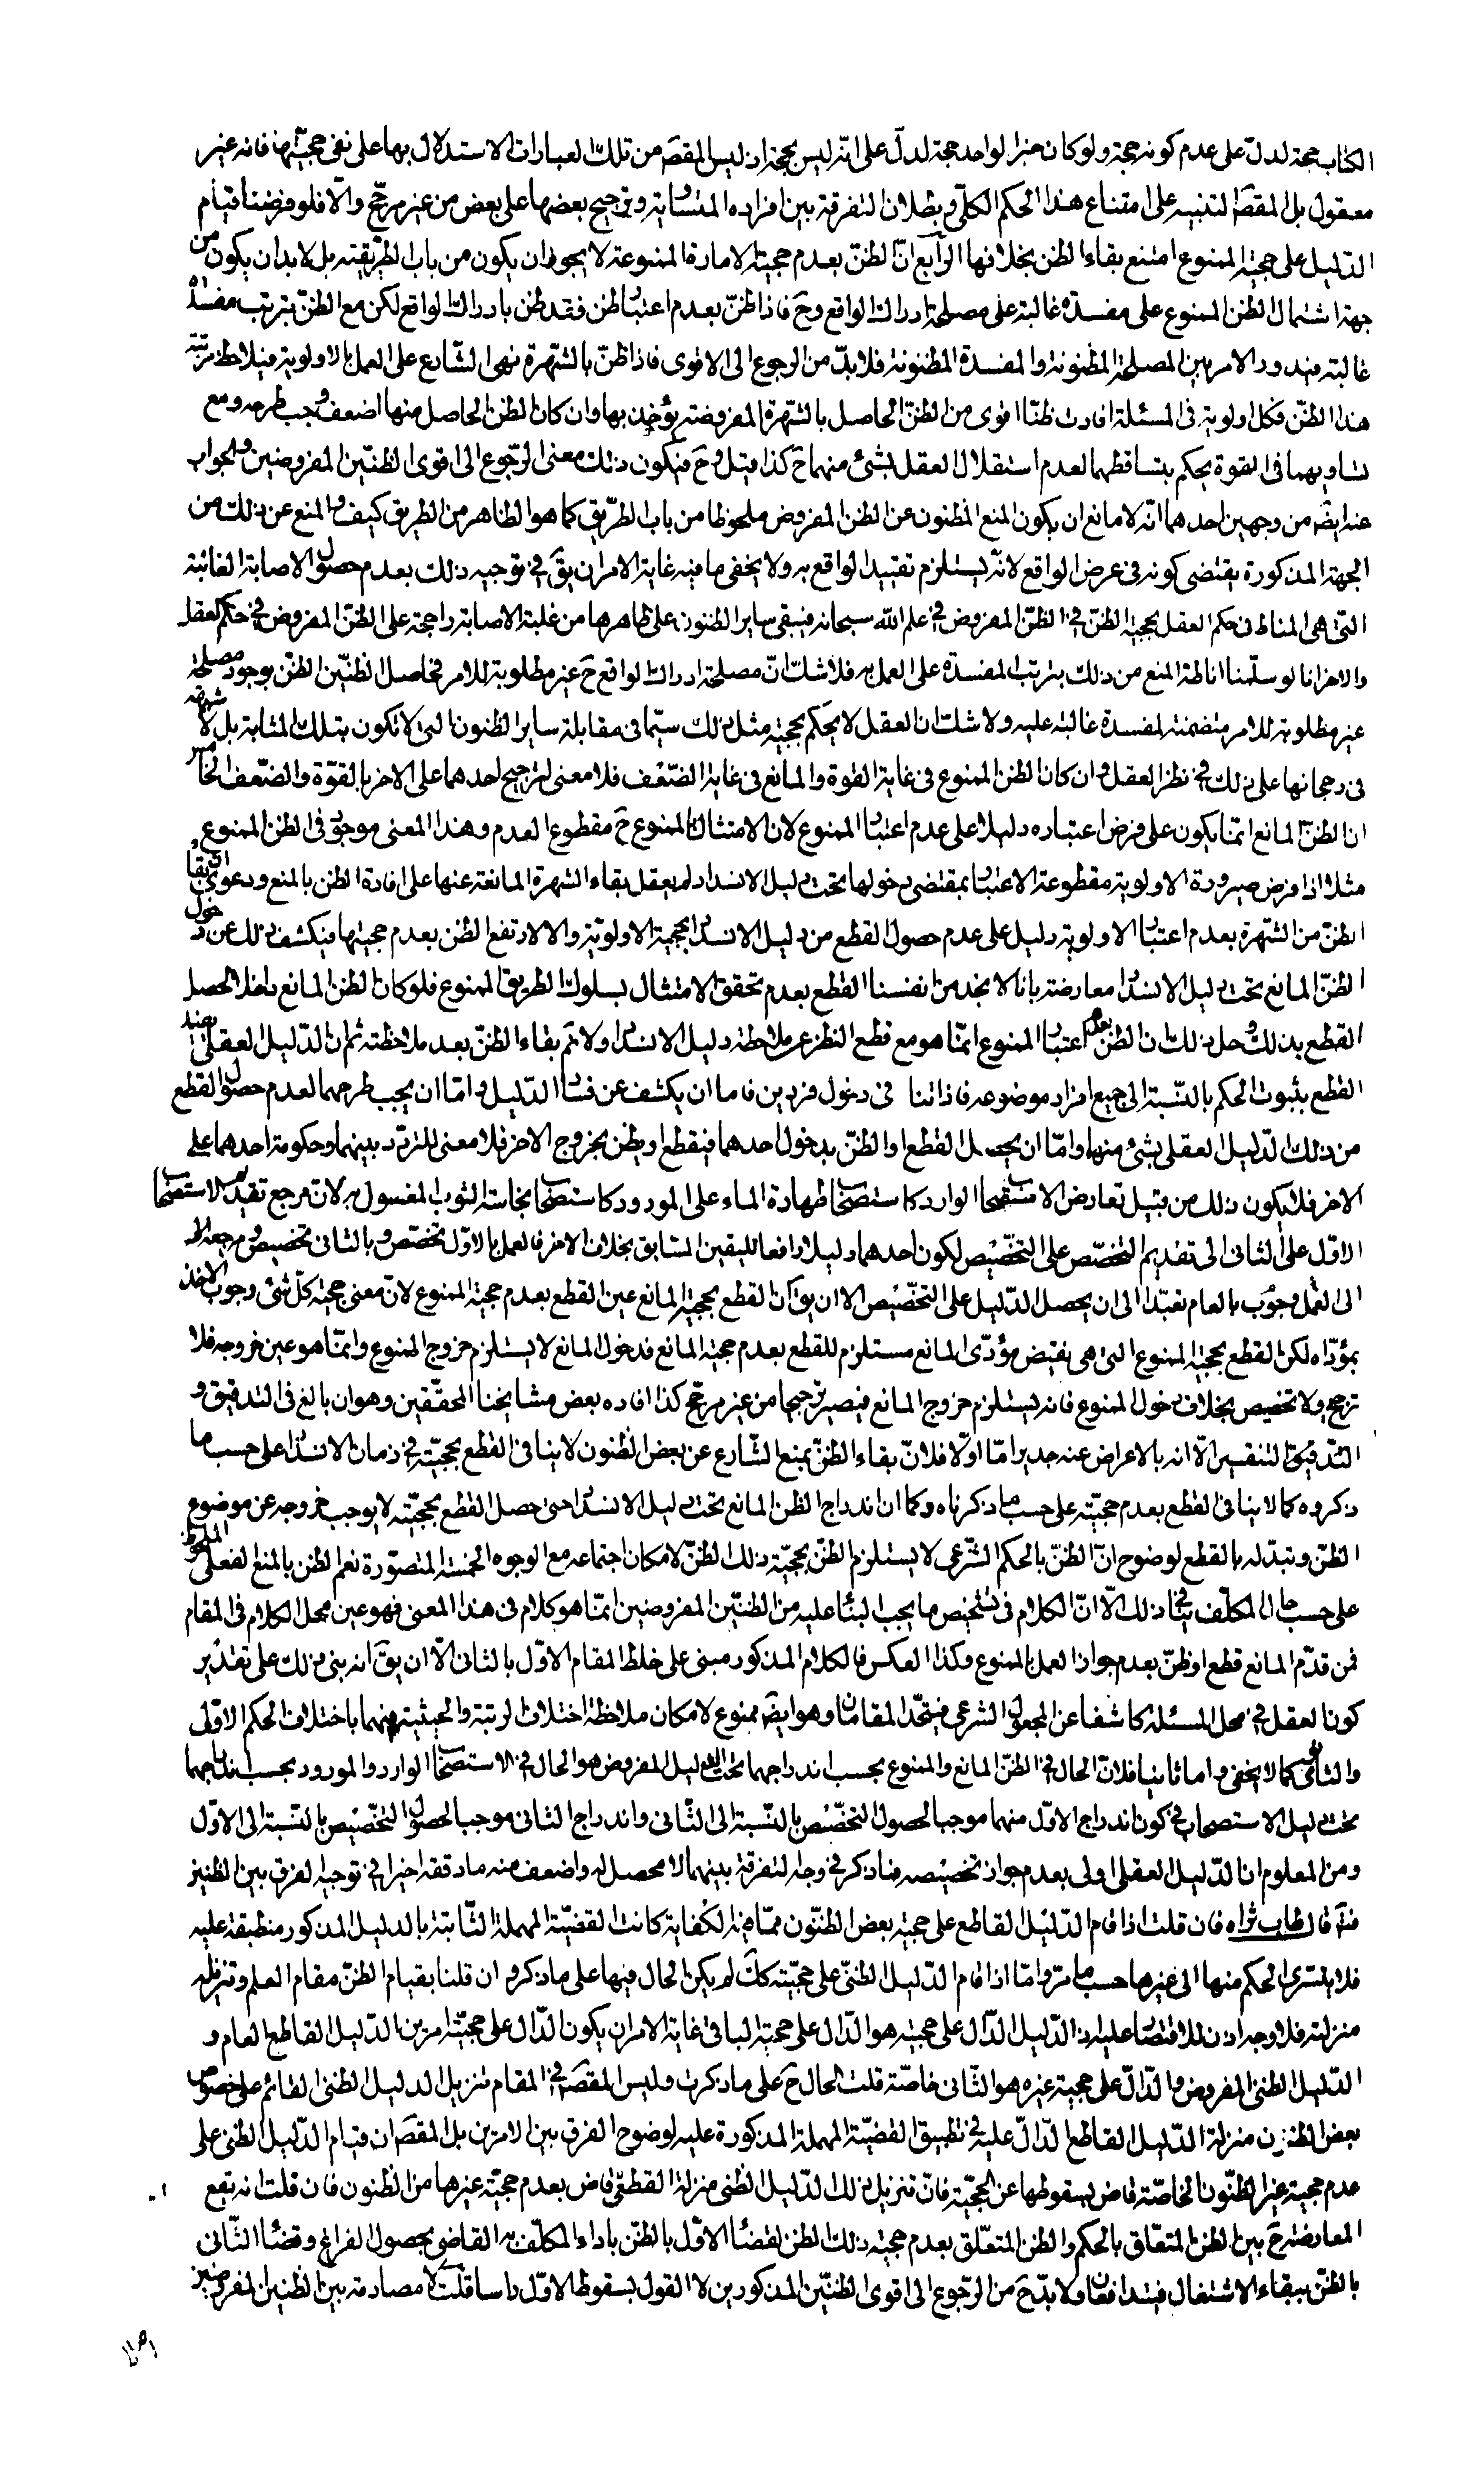 الكتاب حجة لدلّ على عدم كونه حجة ولو كان خبر الواحد حجة لدلّ على انّه ليس بحجة اذ ليس المقصَ من تلك العبارات الاستدلال بها على نفى حجيّتها فانه غير
معقول بل المقصَ التنبيه على امتناع هذا الحكم الكلّى وبطلان التفرقة بين افراده المتشابهة وترجيح بعضها على بعض من غير مرجّح والّا فلو فرضنا قيام
الدّليل على حجية الممنوع امتنع بقاء الظن بخلافها الرّابع انّ الظنّ بعدم حجية الامارة الممنوعة لا يجوز ان يكون من باب الطريقيّة بل لا بد ان يكون من
جهة اشتمال الظن الممنوع على مفسدة غالبة على مصلحة ادراك الواقع وحَ فاذا ظنّ بعدم اعتبار ظن فقد ظن بادراك الواقع لكن مع الظنّ بترتب مفسدة
غالبة فيدور الامر بين المصلحة المظنونة والمفسدة المظنونة فلا بدّ من الرجوع الى الاقوى فاذا ظنّ بالشهرة نهى الشّارع عن العمل بالاولوية فيلاحظ مرتبة
هذا الظنّ فكل اولوية فى المسئلة افادت ظنّا اقوى من الظنّ الحاصل بالشّهرة المفروضة يؤخذ بها وان كان الظن الحاصل منها اضعف وجب طرحه ومع
تساويهما فى القوة يحكم بتساقطهما لعدم استقلال العقل بشئ منهما حَ كذا قيل وحَ فيكون ذلك معنى الرّجوع الى اقوى الظنّين المفروضين والجواب
عنه ايضَ من وجهين احدهما انّه لا مانع ان يكون المنع المظنون عن الظن المفروض ملحوظا من باب الطّريق كما هو الظاهر من الطريق كيف والمنع عن ذلك من
الجهة المذكورة يقتضى كونه فى عرض الواقع لانّه يستلزم تقييد الواقع به ولا يخفى ما فيه غاية الامر ان يقَ فى توجيه ذلك بعدم حصول الاصابة الغالبة
التى هى المناط فى حكم العقل بحجية الظنّ فى الظنّ المفروض فى علم الله سبحانه فيبقى ساير الظنون على ظاهرها من غلبة الاصابة راجحة على الظنّ المفروض فى حكم العقل
والاخر انا لو سلّمنا اناطة المنع من ذلك بترتب المفسدة على العمل به فلا شك انّ مصلحة ادراك الواقع حَ غير مطلوبة للامر فحاصل الظنّين الظنّ بوجود مصلحة
غير مطلوبة للامر متضمنة لمفسدة غالبة عليه ولا شك ان العقل لا يحكم بحجية مثل ذلك سيّما فى مقابلة ساير الظنون التى لا تكون بتلك المثابة بل لا شبهة
فى رجحانها على ذلك فى نظر العقل وان كان الظن الممنوع فى غاية القوة والمانع فى غاية الضّعف فلا معنى لترجيح احدهما على الاخر بالقوّة والضّعف الخامس
ان الظنّ المانع انّما يكون على فرض اعتباره دليلا على عدم اعتبار الممنوع لان الامتثال بالممنوع حَ مقطوع العدم وهذا المعنى موجود فى الظن الممنوع
مثلا اذا فرض صيرورة الاولوية مقطوعة الاعتبار بمقتضى دخولها تحت دليل الانسداد لم يعقل بقاء الشهرة المانعة عنها على افادة الظن بالمنع ودعوى ان بقاء
الظنّ من الشهرة بعدم اعتبار الاولوية دليل على عدم حصول القطع من دليل الانسداد بحجية الاولويّة والا لارتفع الظن بعدم حجيتها فيكشف ذلك عن دخول
الظنّ المانع تحت دليل الانسداد معارضة بانا لا نجد من انفسنا القطع بعدم تحقق الامتثال بسلوك الطريق الممنوع فلو كان الظن المانع داخلا لحصل
القطع بذلك وحل ذلك ان الظن بعدم اعتبار الممنوع انّما هو مع قطع النظر عن ملاحظة دليل الانسداد ولا نم بقاء الظنّ بعد ملاحظته ثم ان الدّليل العقلى يفيد
القطع بثبوت الحكم بالنّسبة الى جميع افراد موضوعه فاذا تنا فى دخول فردين فاما ان يكشف عن فساد الدّليل واما ان يجب طرحهما لعدم حصول القطع
من ذلك الدّليل العقلى بشئ منها وامّا ان يحصل القطع او الظنّ بدخول احدهما فيقطع او يظن بخروج الاخر فلا معنى للتردّد بينهما وحكومة احدهما على
الاخر فلا يكون ذلك من قبيل تعارض الاستصحاب الوارد كاستصحاب طهارة الماء على المورود كاستصحاب نجاسة الثوب المغسول به لان مرجع تقديم الاستصحاب
الاوّل على الثانى الى تقديم التخصّص على التخصيص لكون احدهما دليلا رافعا لليقين السابق بخلاف الاخر فالعمل بالاوّل تخصّص وبالثانى تخصيص ومرجعه
الى العمل وجوب بالعام تعبّدا الى ان يحصل الدّليل على التخصيص الا ان يقَ ان القطع بحجية المانع عين القطع بعدم حجية الممنوع لانّ معنى حجية كلّ شئ وجوب الاخذ
بمؤدّاه لكن القطع بحجية الممنوع التى هى نقيض مؤدّى المانع مستلزم للقطع بعدم حجية المانع فدخول المانع لا يستلزم خروج الممنوع وانّما هو عين خروجه فلا
ترجيح ولا تخصيص بخلاف دخول الممنوع فانه يستلزم خروج المانع فيصير ترجيحا من غير مرجّح كذا افاده بعض مشايخنا المحقّقين وهو ان بالغ فى التدقيق و
التدقيق التنفسين الّا انه بالاعراض عنه جدير امّا اوّلا فلانّ بقاء الظنّ بمنع الشّارع عن بعض الظنون لا ينافى القطع بحجيّته فى زمان الانسداد على حسب ما
ذكروه كما لا ينافى القطع بعدم حجيّته على حسب ما ذكرناه وكما ان اندراج الظن المانع تحت دليل الانسداد حتى حصل القطع بحجيّته لا يوجب خروجه عن موضوع
الظنّ وتبدّله بالقطع لوضوح انّ الظنّ بالحكم الشّرعى لا يستلزم الظنّ بحجيّة ذلك الظنّ لامكان اجتماعه مع الوجوه الخمسة المتصوّرة نعم الظن بالمنع الفعلى الملحوظ
على حسب حال المكلّف ينافى ذلك الّا انّ الكلام فى تشخيص ما يجب البناء عليه من الظنّين المفروضين انّما هو كلام فى هذا المعنى فهو عين محل الكلام فى المقام
فمن قدّم المانع قطع او ظنّ بعدم جواز العمل بالممنوع وكذا العكس فالكلام المذكور مبنى على خلط المقام الاوّل بالثانى الّا ان يقَ انه بنى ذلك على تقدير
كون العقل فى محل المسئلة كاشفا عن المجعول الشرعى فيتّحد المقامان وهو ايضَ ممنوع لامكان ملاحظة اختلاف الرتبة والحيثية فيهما باختلاف الحكم الاوّلى
والثانوى كما لا يخفى واما ثانيا فلانّ الحال فى الظنّ المانع والممنوع بحسب اندراجهما تحت الدليل المفروض هو الحال فى الاستصحاب الوارد والمورود بحسب اندراجهما
تحت دليل الاستصحاب فى كون اندراج الاوّل منهما موجبا لحصول التخصّص بالنّسبة الى الثّانى واندراج الثانى موجبا لحصول التخصيص بالنّسبة الى الاوّل
ومن المعلوم ان الدّليل العقلى اولى بعدم جواز تخصيصه فما ذكر فى وجه التفرقة بينهما لا محصل له واضعف منه ما دققه اخيرا فى توجيه الفرق بين الظنين
قال طاب ثراه فان قلت اذا قام الدّليل القاطع على حجية بعض الظنّون ممّا فيه الكفاية كانت القضيّة المهملة الثّابتة بالدليل المذكور منطبقة عليه
فلا يتسرى الحكم منها الى غيرها حسب ما مرّ وامّا اذا قام الدّليل الظنّى على حجيّته ككَ لم يكن الحال فيها على ما ذكر وان قلنا بقيام الظنّ مقام العلم وتنزيله
منزلته فلا وجه اذن للاقتصار عليه اذ الدّليل الدّال على حجيته هو الدّال على حجية الباقى غاية الامر ان يكون الدّال على حجيّته امرين الدّليل القاطع العام و
الدّليل الظنى المفروض والدّالّ على حجية غيره هو الثّانى خاصّة قلت الحال حَ على ما ذكرت وليس المقصَ فى المقام تنزيل الدليل الظنى القائم على خصوص
بعض الظنون منزلة الدّليل القاطع الدّالّ عليه فى تطبيق القضيّة المهملة المذكورة عليه لوضوح الفرق بين الامرين بل المقصَ ان قيام الدّليل الظنى على
عدم حجية غير الظنّون الخاصّة قاض بسقوطها عن الحجّية فانّ تنزيل ذلك الدّليل الظنى منزلة القطعىّ قاض بعدم حجيّة غيرها من الظنون فان قلت انه تقع
المعارضة حَ بين الظن المتعّلق بالحكم والظن المتعّلق بعدم حجية ذلك الظن لقضاء الاوّل بالظنّ باداء المكلّف به القاضى بحصول الفراغ وقضاء الثّانى
بالظنّ ببقاء الاشتغال فيتدافعان ولا بدّ حَ من الرّجوع الى اقوى الظنّين المذكورين لا القول بسقوط الاوّل راسا قلت لا مصادمة بين الظنين المفروضين